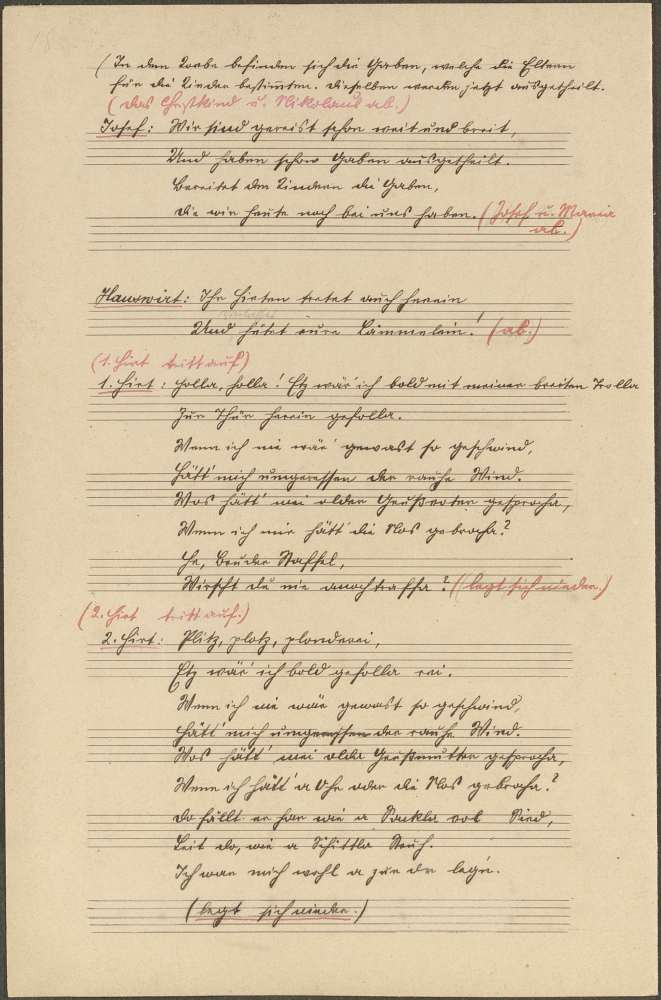 ( In dem Korbe befinden sich die Gaben, welche die Eltern
für die Kinder bestimten. Dieselben werden jetzt ausgetheilt.
(das Christkind u. Nikolaus ab.)
Josef: Wir sind gereist schon weit und breit,
Und haben schon Gaben ausgetheilt.
Bereitet den Kindern die Gaben,
die wir heute noch bei uns haben. (Josef u. Maria
ab.)
Hauswirt: Ihr Hirten tretet auch herein
Und hütet eure Lämmelein! (ab.)
(1. Hirt tritt auf)
1. Hirt: Holla, holla! Etz wär' ich bold mit meiner breiten Trolla
Zur Thür herein gefolla.
Wenn ich nie wär' gewast so geschwind,
Hätt' mich umgeressen der rauhe Wind.
Wos hätt' mei older Großvoter gesprocha,
Wenn ich mir hätt' die Nos gebrocha?
He, Bruder Staffel,
Wirscht du nie a noch traffa? (legt sich nieder.)
(2. Hirt tritt auf.)
2. Hirt: Plitz, plotz, plonderei,
Etz wär' ich bold gefolla rei.
Wenn ich nie wär gewast so geschwind,
Hätt' mich umgeressen der rauhe Wind.
Wos hätt' mei olde Großmutter gesprocha,
Wenn ich hätt' a Ohr oder die Nos gebrocha?
Do fällt er har wie a Sackla vol
Leit do, wie a Schittla Struh.
Ich war mich wohl a zur dr legn.
(legt sich nieder.)